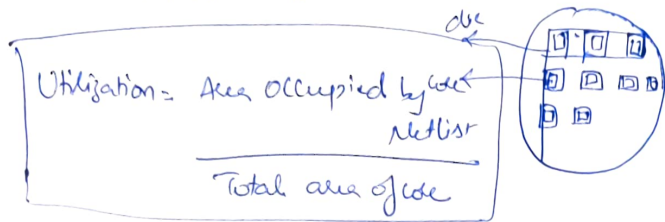 die
Utilization = Area Occupied by core
Netlist
Total area of core